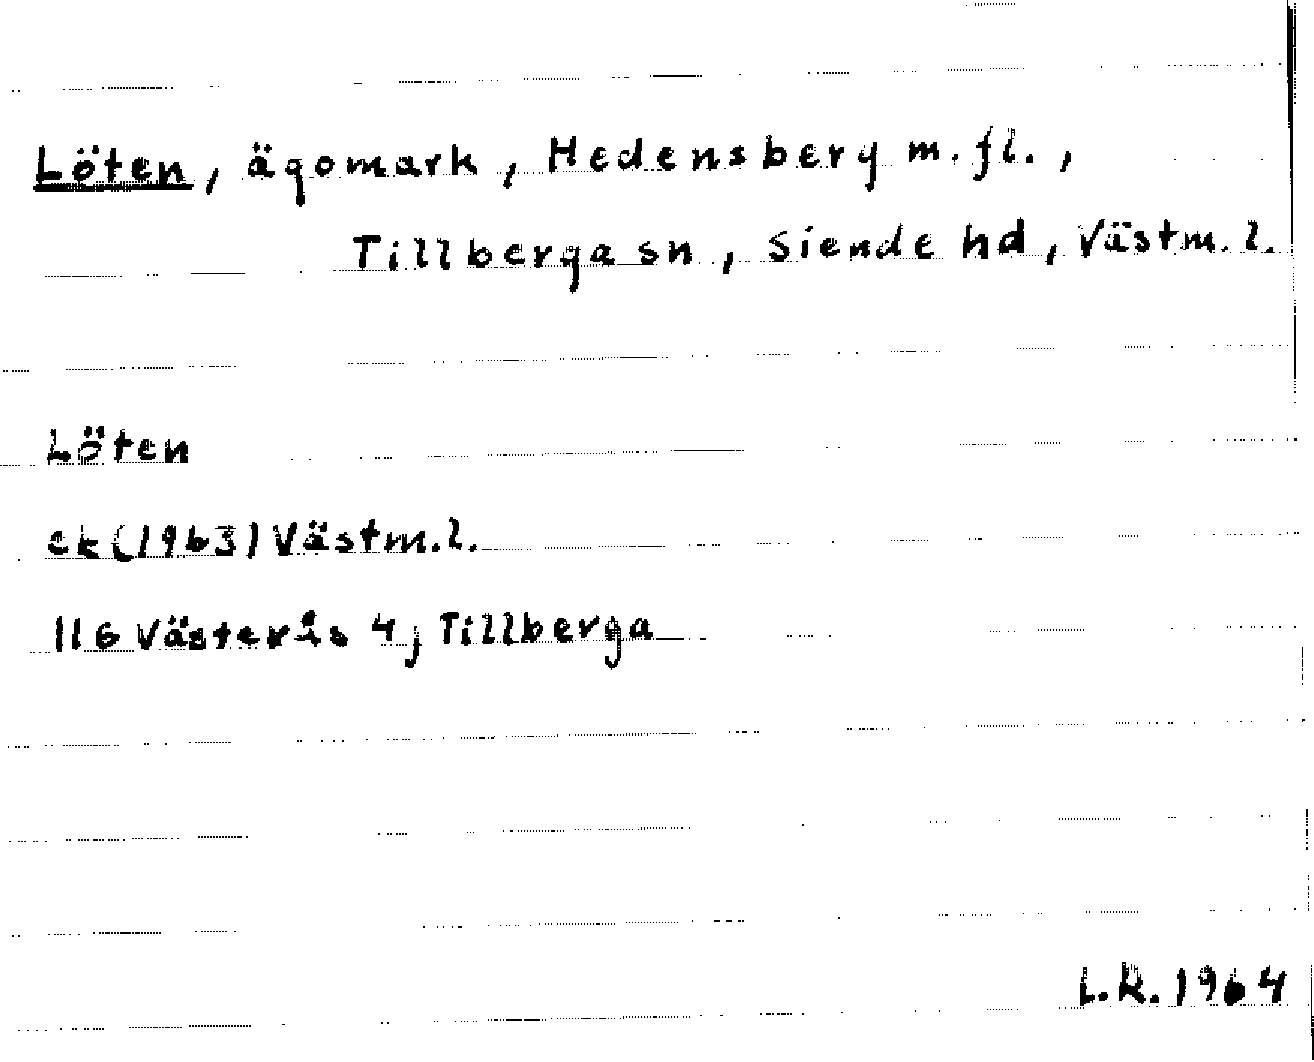 Löten, ägomark, Hedensberg m.fl.,
Tillberga sn, Siende hd, Västm.l.
Löten
ek (1963) Västm.l.
11G Västerås 4j Tillberga
L.R. 1964